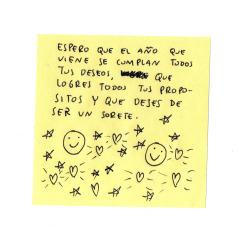 ESPERO QUE EL AÑO QUE
VIENE SE CUMPLAN TODOS
TUS DESEOS, QUE
LOGRES TODOS TUS PROPO-
SITOS Y QUE DEJES DE
SER UN SORETE.